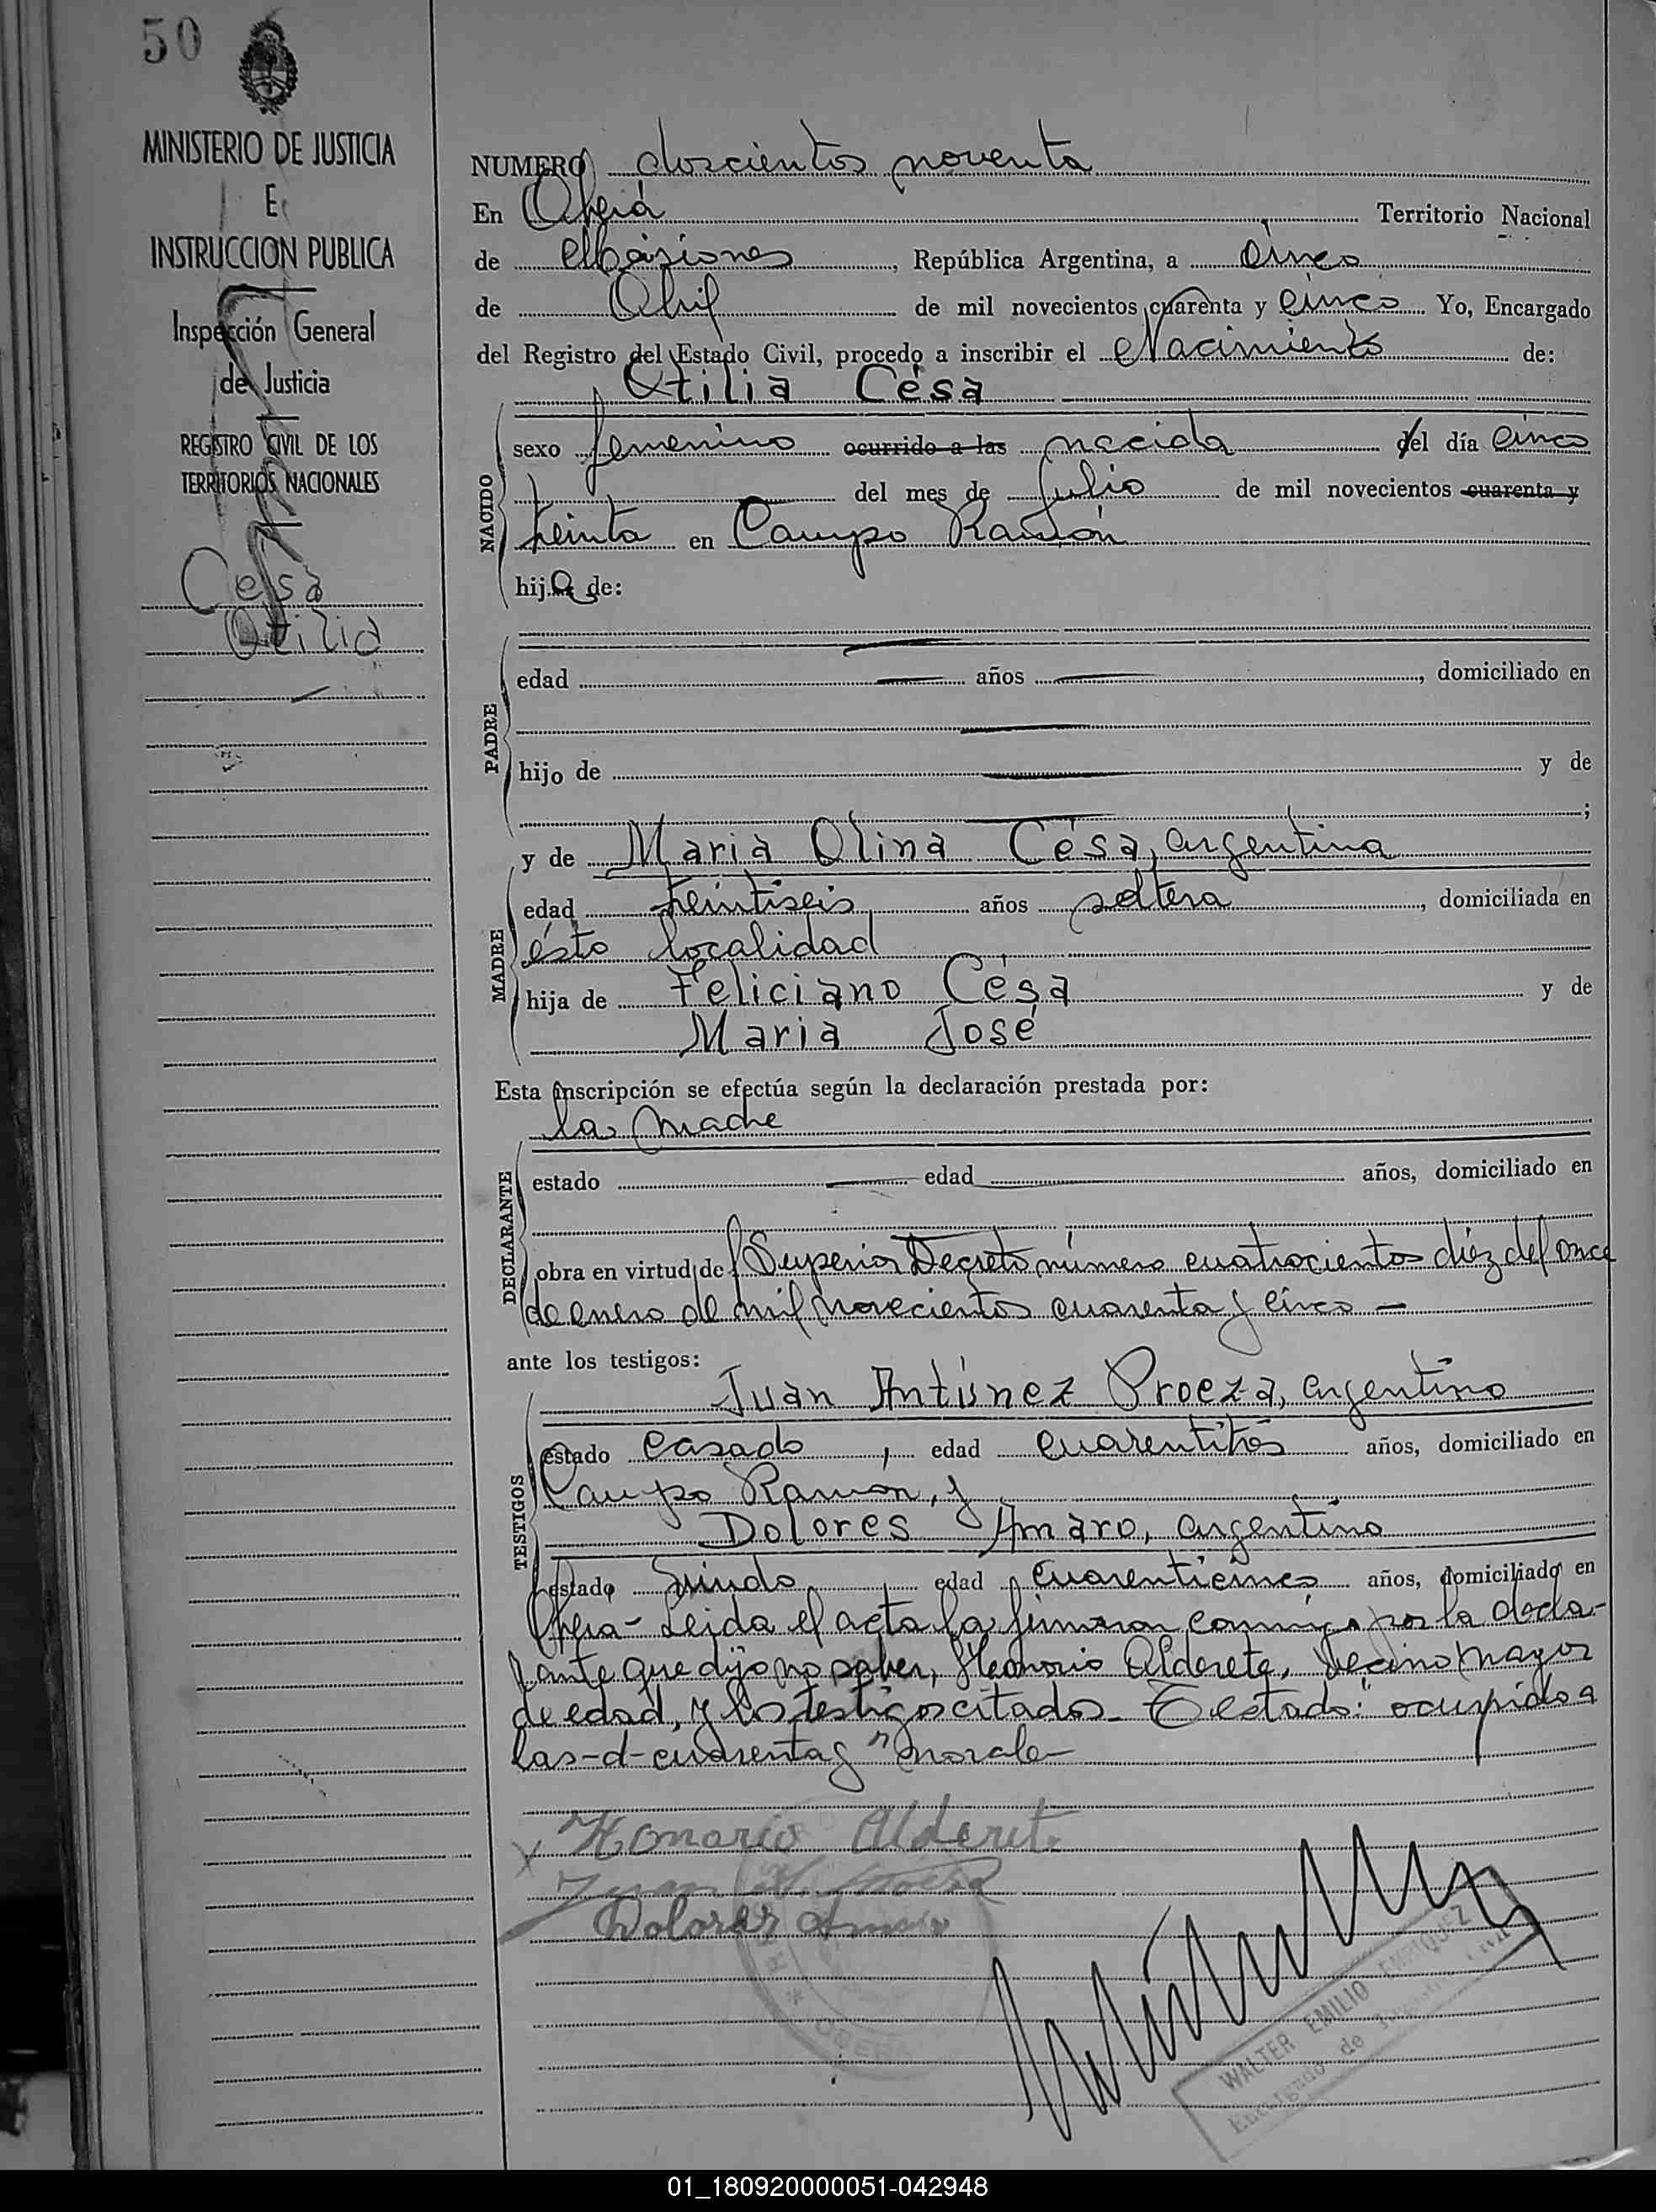 50
MINISTERIO DE JUSTICIA
E
INSTRUCCION PUBLICA
Inspección General
de Justicia
REGISTRO CIVIL DE LOS
TERRITORIOS NACIONALES
Cesa
Otilia
NUMERO doscientos noventa
En Oberá Territorio Nacional
de Misiones, República Argentina, a cinco
de Abril de mil novecientos cuarenta y cinco Yo, Encargado
del Registro del Estado Civil, procedo a inscribir el Nacimiento de:
Otilia Césa
NACIDO
sexo femenino ocurrido a las nacida del día cinco
del mes de Julio de mil novecientos cuarenta y
treinta en Campo Ramón
hija de:
PADRE
edad años, domiciliado en
hijo de y de
;
y de Maria Olina Césa, argentina
MADRE
edad treintiseis años soltera, domiciliada en
ésta localidad
hija de Feliciano Césa y de
Maria José
Esta inscripción se efectúa según la declaración prestada por:
la madre
DECLARANTE
estado edad años, domiciliado en
obra en virtud de Superior Decreto número cuatrocientos diez del once
de enero de mil novecientos cuarenta y cinco –
ante los testigos:
Juan Antúnez Proeza, argentino
TESTIGOS
estado casado, edad cuarentitrés años, domiciliado en
Campo Ramón, y
Dolores Amaro, argentino
estado viudo, edad cuarenticinco años, domiciliado en
Oberá - Leida el acta la firmaron conmigo por la decla-
rante que dijo no saber, Honorio Alderete, vecino mayor
de edad, y los testigos citados. Testado: "ocurrido a
las-d-cuarenta y" no vale-
x Honorio Alderete
Juan A. Proeza
Dolores Amaro
OBERA
WALTER EMILIO ENRIQUEZ
Encargado de Registro Civil
01_180920000051-042948